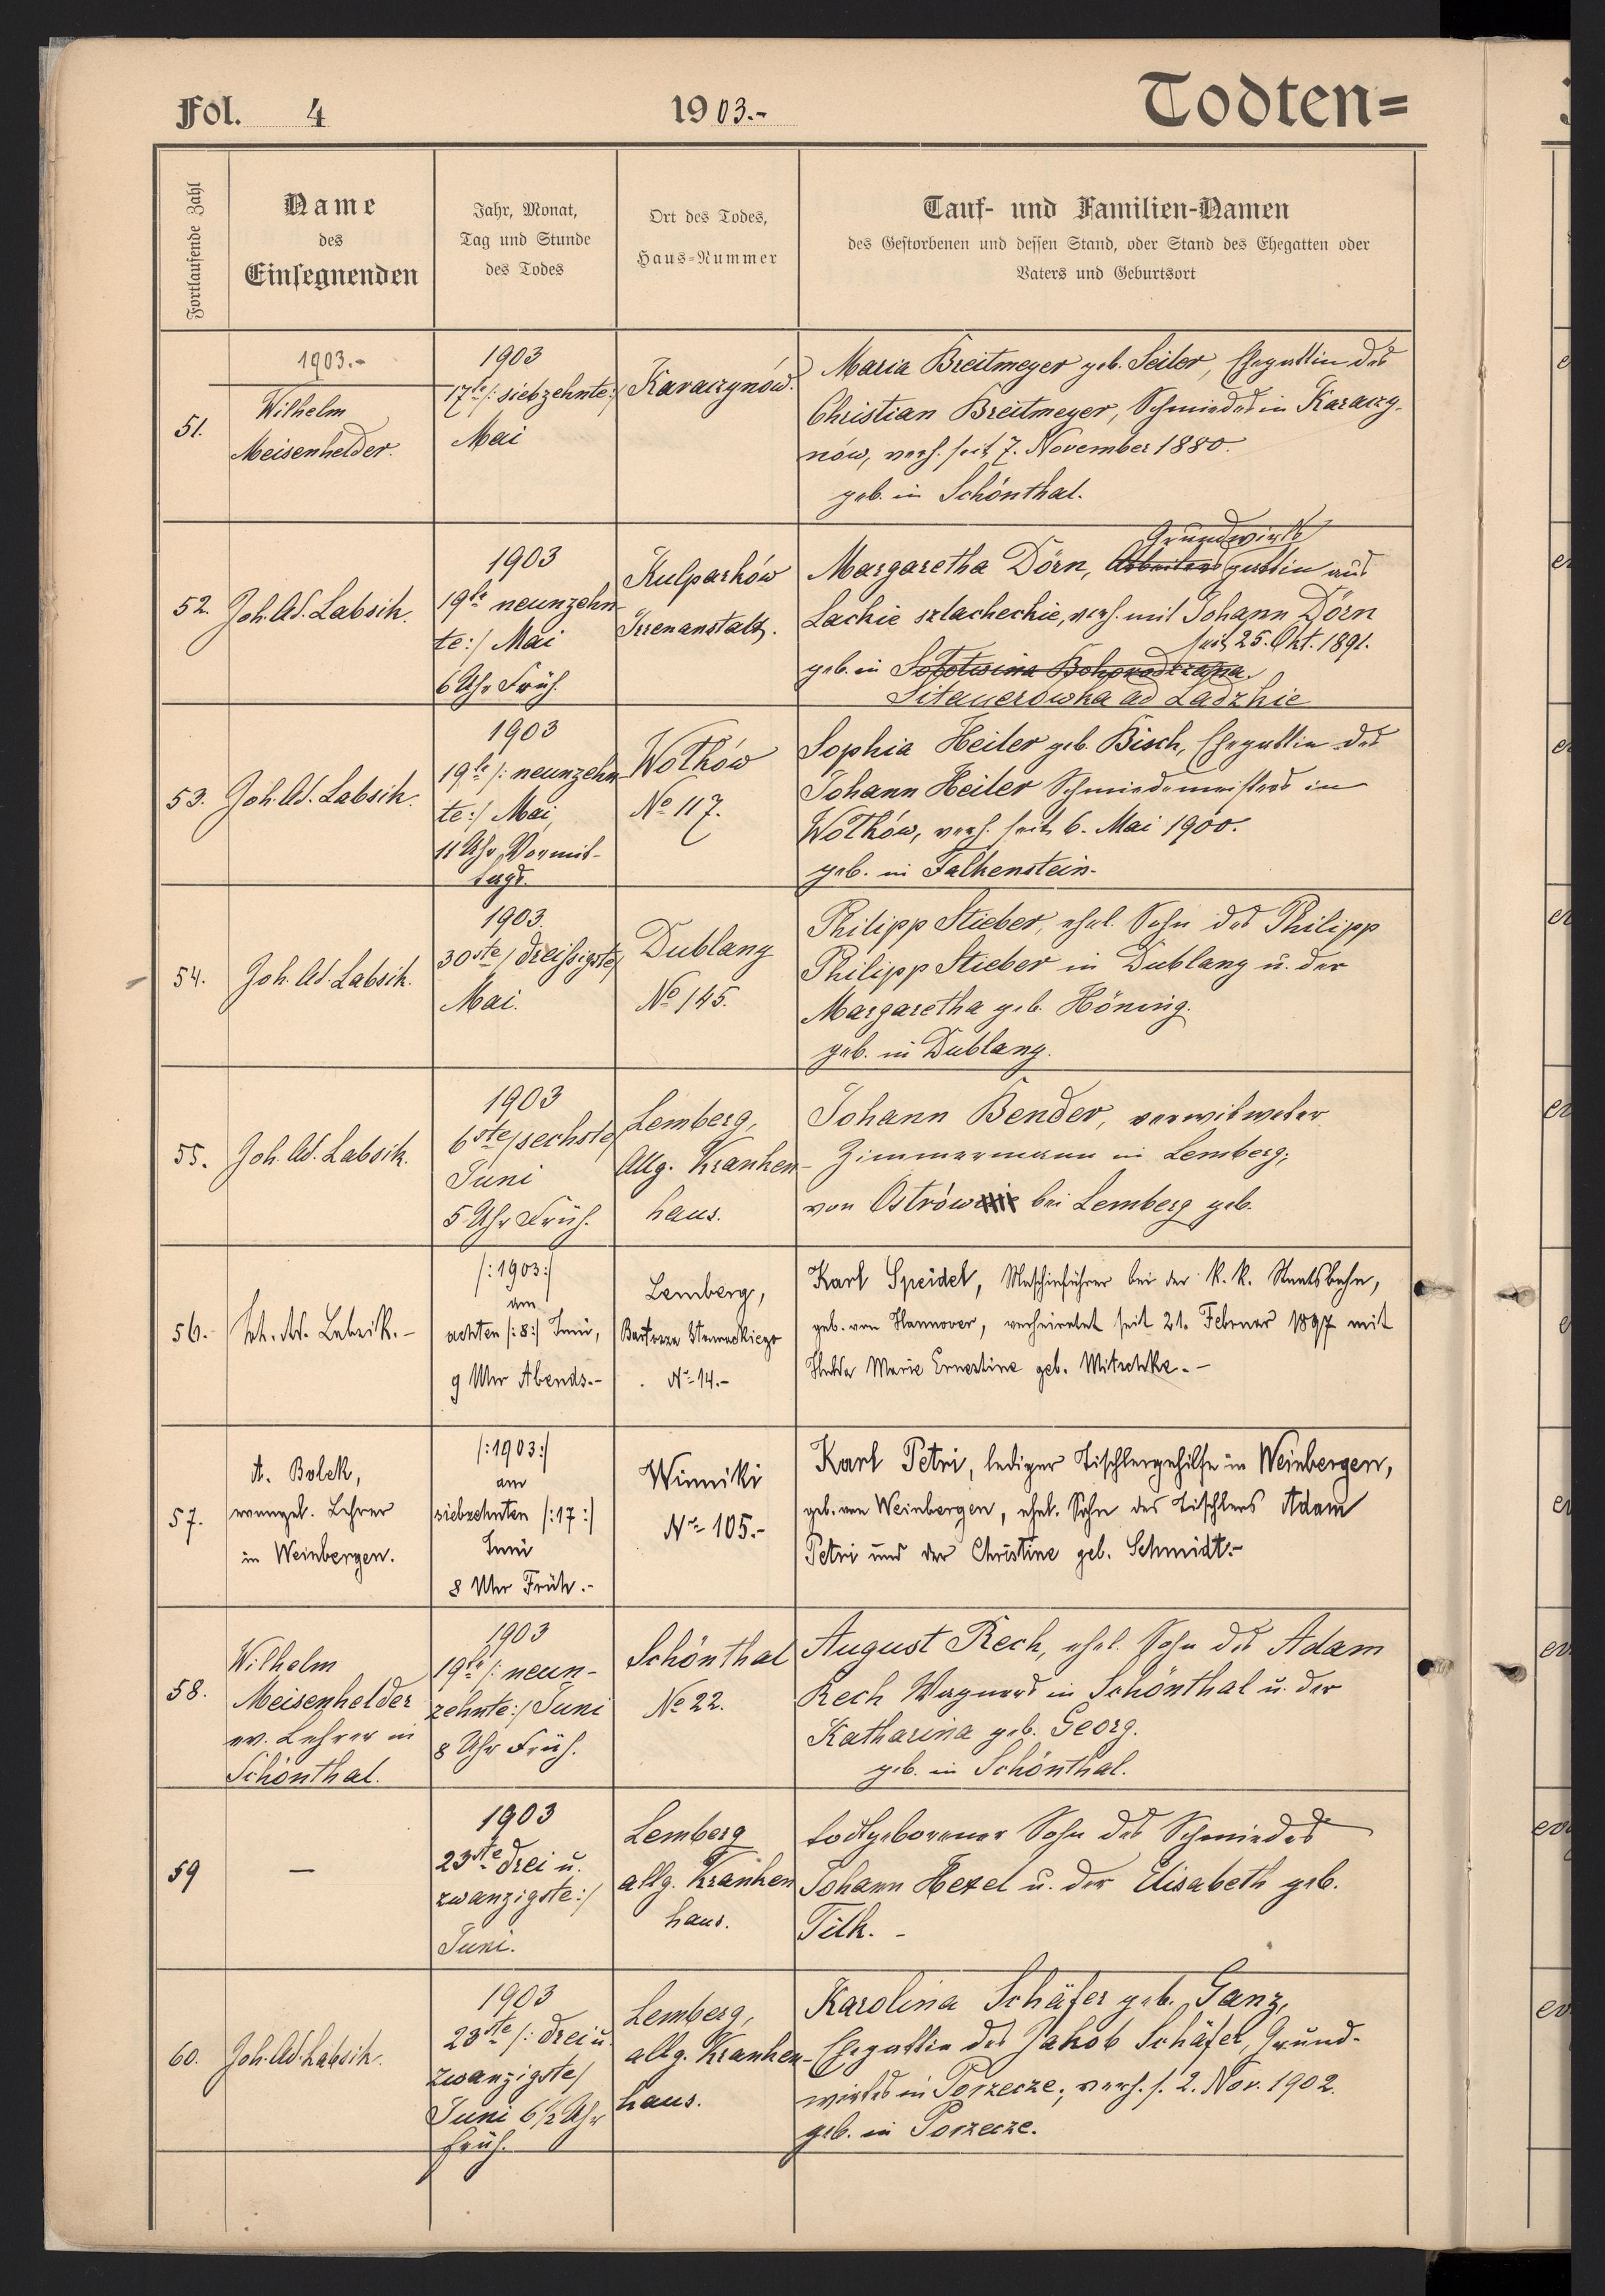 Fol. 4
1903.-
Todten=
Fortlaufende Zahl
Name
des
Einsegnenden
Jahr, Monat,
Tag und Stunde
des Todes
Ort des Todes,
Haus-Nummer
Tauf- und Familien-Namen
des Gestorbenen und dessen Stand, oder Stand des Ehegatten oder
Vaters und Geburtsort
51.
1903.-
Wilhelm
Meisenhelder.
1903
17te /: siebzehnte:/
Mai
Karaczynów.
Maria Breitmeyer geb. Seiler, Ehegattin des
Christian Breitmeyer, Schmiedes in Karaczy-
nów, verh. seit 7. November 1880.
geb. in Schönthal.
52.
Joh. Ad. Labsik.
1903
19te neunzehn-
te:/ Mai
6 Uhr Früh.
Kulparków
Irrenanstalt.
Grundwirts
Margaretha Dörn, Arbeiters gattin aus
Lackie szlacheckie, verh. mit Johann Dörn
seit 25. Okt. 1891.
geb. in Sototwina Bohorodczana.
Sitauerowka ad Ladzkie
53.
Joh. Ad. Labsik.
1903
19te /: neunzehn-
te:/ Mai,
11 Uhr Vormit-
tags.
Wołków
No 117.
Sophia Heiler geb. Bisch, Ehegattin des
Johann Heiler Schmiedemeisters in
Wołków, verh. seit 6. Mai 1900.
geb. in Falkenstein.
54.
Joh. Ad. Labsik.
1903.
30ste / dreißigste/
Mai.
Dublany
No 145.
Philipp Stieber, ehel. Sohn des Philipp
Philipp Stieber in Dublany u. der
Margaretha geb. Höning.
geb. in Dublany.
55.
Joh. Ad. Labsik.
1903
6ste /sechste/
Juni
5 Uhr Früh.
Lemberg,
Allg. Kranken-
haus.
Johann Bender, verwitweter
Zimmermann in Lemberg;
von Ostrów bei Lemberg geb.
56.-
Joh. Ad. Labsik.-
/:1903:/
am
achten /:8:/ Juni,
9 Uhr Abends.-
Lemberg,
No 14.-
Karl Speidel, Maschinführer bei der k. k. Staatsbahn,
geb. von Hannover, verheiratet seit 21. Februar 1897 mit
Hulda Marie Ernestine geb. Mitschke.-
57.
A. Bolek,
evangel. Lehrer
in Weinbergen.
/:1903:/
am
siebzehnten /:17:/
Juni
8 Uhr Früh.-
Winniki
No 105.-
Karl Petri, lediger Tischlergehilfe in Weinbergen,
geb. von Weinbergen, ehel. Sohn des Tischlers Adam
Petri und der Christine geb. Schmidt.-
58.
Wilhelm
Meisenhelder
ev. Lehrer in
Schönthal.
1903
19te /: neun-
zehnte:/ Juni
8 Uhr Früh.
Schönthal
No 22.
August Rech, ehel. Sohn des Adam
Rech Wagners in Schönthal u. der
Katharina geb. Georg.
geb. in Schönthal.
59
—
1903
23ste drei u.
zwanzigste:/
Juni.
Lemberg
allg. Kranken
haus.
todtgeborener Sohn des Schmiedes
Johann Hexel u. der Elisabeth geb.
Tilk. -
60.
Joh. Ad. Labsik.
1903
23ste /: drei u.
zwanzigste/
Juni 6½ Uhr
Früh.
Lemberg,
allg. Kranken-
haus.
Karolina Schäfer geb. Ganz,
Ehegattin des Jakob Schäfer, Grund-
wirtes in Porzecze; verh. s. 2. Nov. 1902.
geb. in Porzecze.